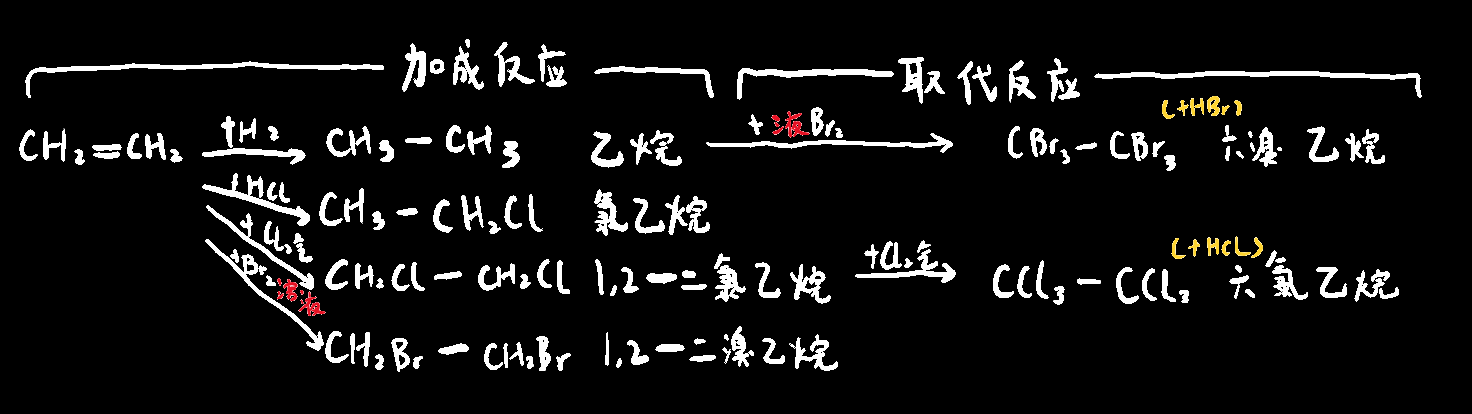 加成反应 取代反应
CH₂=CH₂ +H₂ CH₃-CH₃ 乙烷 +液Br₂ CBr₃-CBr₃ (+HBr) 六溴乙烷
+HCl CH₃-CH₂Cl 氯乙烷
+Cl₂气 CH₂Cl-CH₂Cl 1,2-二氯乙烷 +Cl₂气 CCl₃-CCl₃ (+HCL) 六氯乙烷
+Br₂溶液 CH₂Br-CH₂Br 1,2-二溴乙烷